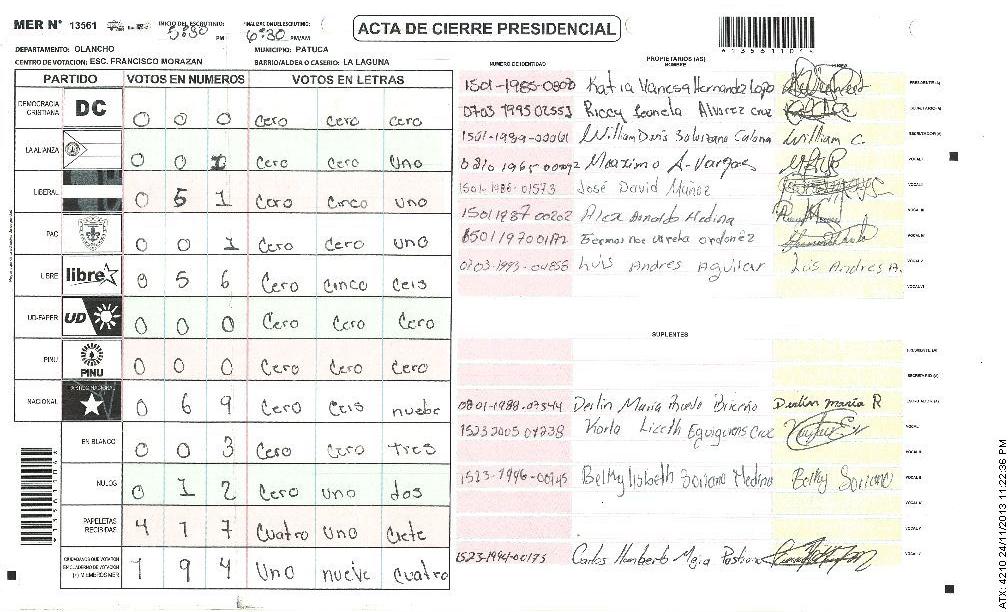 MER N° 13561 INICIO DEL ESCRUTINIO: 5:30 PM FINALIZACION ESCRUTINIO: 6:30 PM/AM
ACTA DE CIERRE PRESIDENCIAL
DEPARTAMENTO: OLANCHO MUNICIPIO: PATUCA
CENTRO DE VOTACION: ESC. FRANCISCO MORAZAN BARRIO/ALDEA O CASERIO: LA LAGUNA
PARTIDO VOTOS EN NUMEROS VOTOS EN LETRAS
DEMOCRACIA CRISTIANA DC 0 0 0 Cero cero cero
LA ALIANZA 0 0 1 Cero Cero Uno
LIBERAL 0 5 1 Cero Cinco uno
PAC 0 0 1 Cero Cero uno
LIBRE libre 0 5 6 Cero cinco ceis
UD-FAPER UD 0 0 0 Cero Cero Cero
PINU PINU 0 0 0 Cero Cero Cero
NACIONAL PARTIDO NACIONAL 0 6 9 Cero Ceis nuebe
EN BLANCO 0 0 3 Cero Cero tres
NULOS 0 1 2 Cero uno dos
PAPELETAS RECIBIDAS 4 1 7 Cuatro Uno Ciete
CIUDADANOS QUE VOTARON EN CUADERNO DE VOTACION (+) MIEMBROS MER 1 9 4 Uno nueve cuatro
NUMERO DE IDENTIDAD PROPIETARIOS (AS) NOMBRE FIRMA
1501-1985-0808 Katia Vanesa Hernandez Lopo PRESIDENTE (A)
0703 1995 02553 Riccy Leonela Alvarez cruz SECRETARIO (A)
1501-1989-00061 William Denis Solorzano Calona William C. ESCRUTADOR (A)
Maximo A. Vargas VOCAL I
1501-1986-01573 José David Muñoz VOCAL II
1501 1987 00202 Alex Arnaldo Medina VOCAL III
VOCAL IV
0703-1993-04856 Luis Andres Aguilar Luis Andres A. VOCAL V
VOCAL VI
SUPLENTES
PRESIDENTE (A)
SECRETARIO (A)
0801-1988-07544 Derlin Maria Briceño Derlin maria R ESCRUTADOR (A)
1523 2005 07238 Karla Lizeth Cruz VOCAL I
VOCAL II
1523-1996-00945 Belky lisbeth Soriano Medina Belky Soriano VOCAL III
VOCAL V
1523-1994-00175 Carlos Humberto Mejia Pastrana
ATX: 4210 24/11/2013 11:22:36 PM